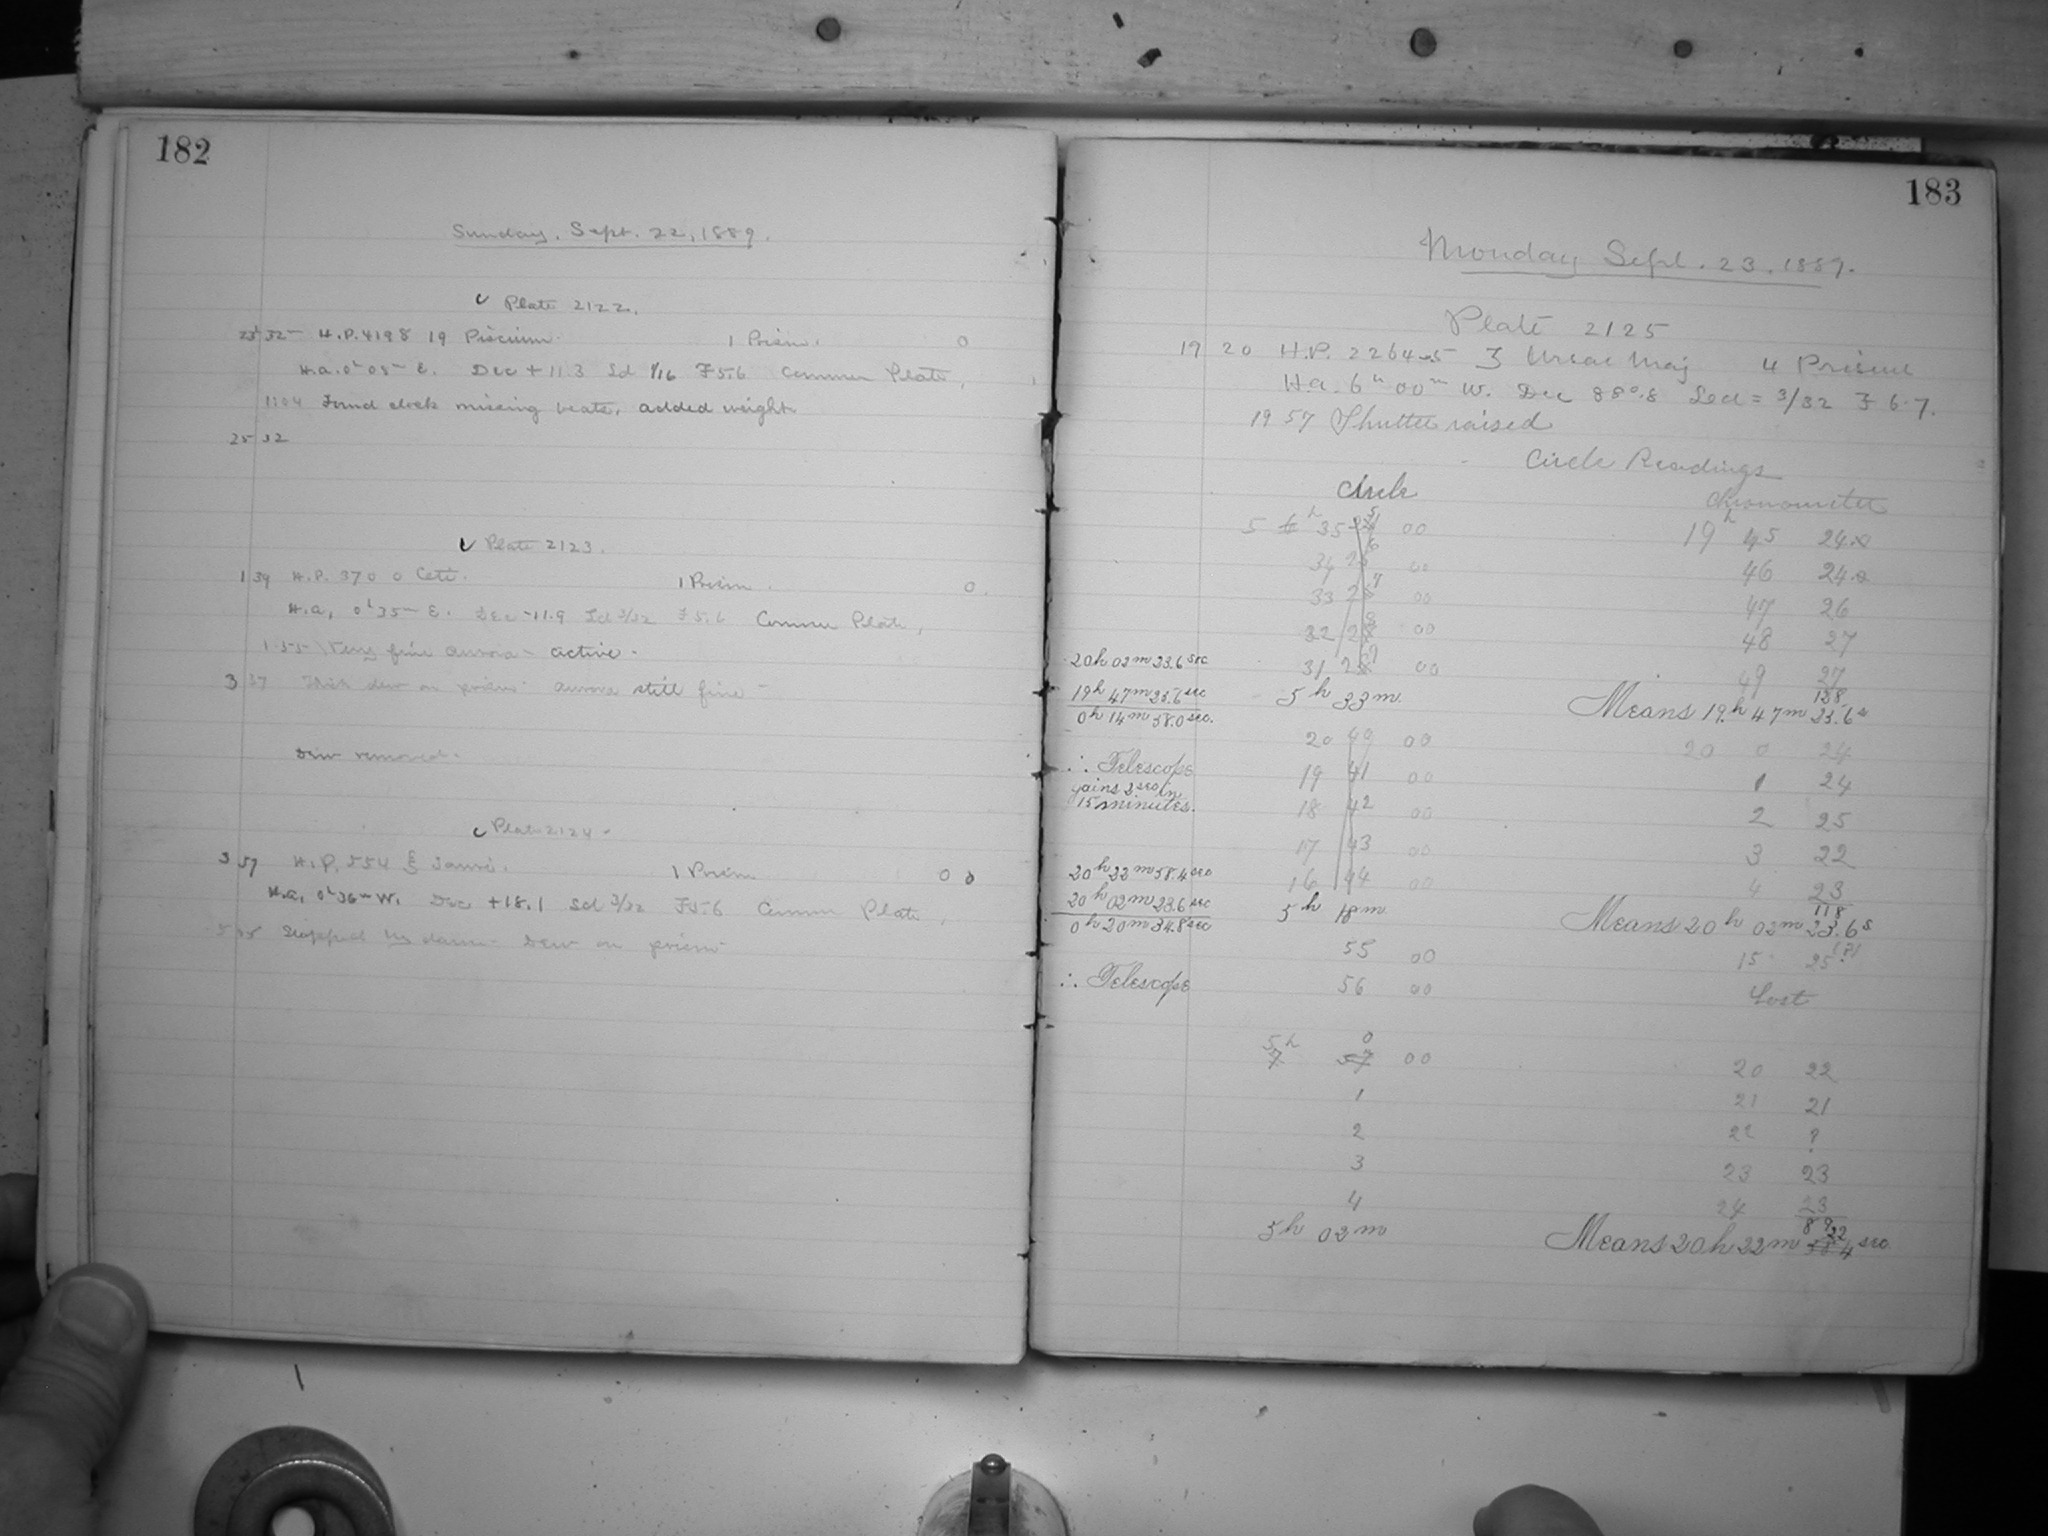 182
Sunday, Sept. 22, 1889.
Plate 2122.
23h 32m H.P. 4198 19 Piscium. 1 Prism. 0
H.a. 0h 05m E. Dec +11.3 Sd 1/16 F 5.6 Common Plate.
Found clock missing beats, added weight.
25 32
Plate 2123.
1 39 H.P. 370 o Ceti. 1 Prism. 0.
H.a. 0h 35m E. Dec -11.9 Sd 3/32 F 5.6 Common Plate,
1 55 Very fine aurora - active -
3 37 Thick dew on prism. aurora still fine -
Dew removed.
Plate 2124 -
3 57 H.P. 554 Tauri. 1 Prism 0 0
H.a. 0h 36m W. Dec +18.1 Sd 3/32 F 5.6 Common Plate,
Stopped by dawn - Dew on prism
183
Monday Sept. 23, 1889.
Plate 2125
19 20 H.P. 2264-5 ζ Ursae Maj 4 Prisms
H.a. 6h 00m W. Dec 88°.8 Sed = 3/32 F 6.7.
19 57 Shutter raised
Circle Readings
Circle Chronometer
5 6h 35 00 19h 45 24
34 00 46 24
33 00 47 26
32 28 00 48 27
31 28 00 49 27
128
20h 02m 23.6 sec
19h 47m 25.6 sec
0h 14m 58.0 sec.
5h 33m Means 19h 47m 25.6s
20 49 00 20 0 24
∴ Telescope
gains 2 sec in
15 minutes.
19 41 00 1 24
18 42 00 2 25
17 43 00 3 22
16 44 00 4 23
118
20h 22m 58.4 sec
20h 02m 23.6 sec
0h 20m 34.8 sec
5h 18m Means 20h 02m 23.6s
55 00 15 25 (?)
∴ Telescope 56 00 Lost
5h 0
7 57 00 20 22
1 21 21
2 22 ?
3 23 23
4 24 23
89
5h 02m Means 20h 22m 22.4 sec